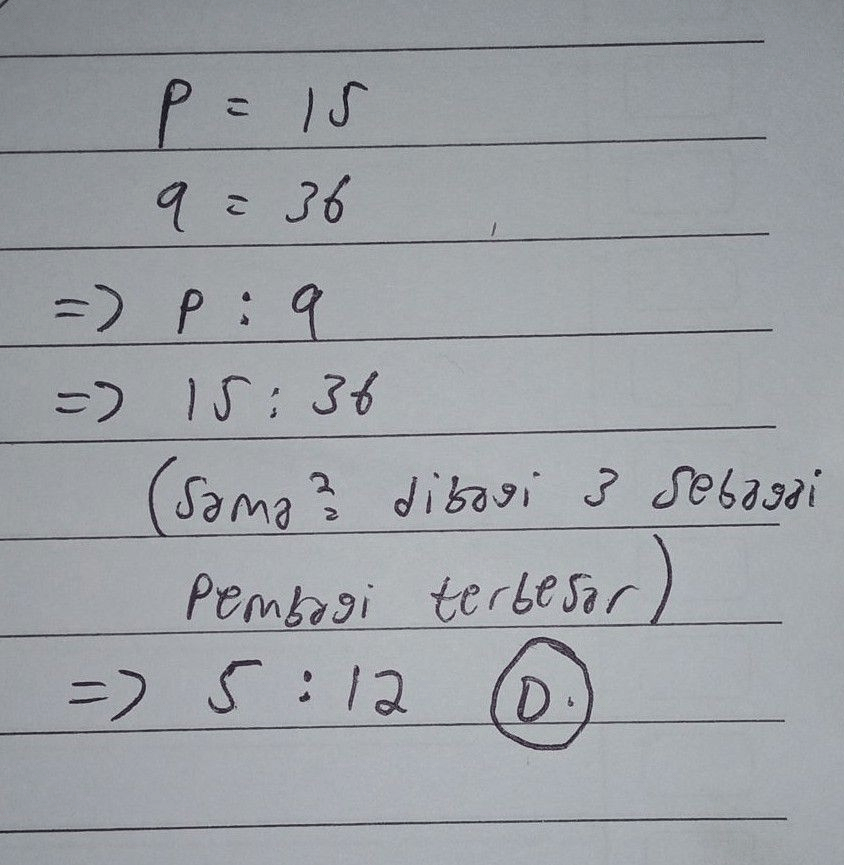 P = 15
q = 36
=> P : q
=> 15 : 36
(Sama² dibagi 3 sebagai
Pembagi terbesar)
=> 5 : 12 D.